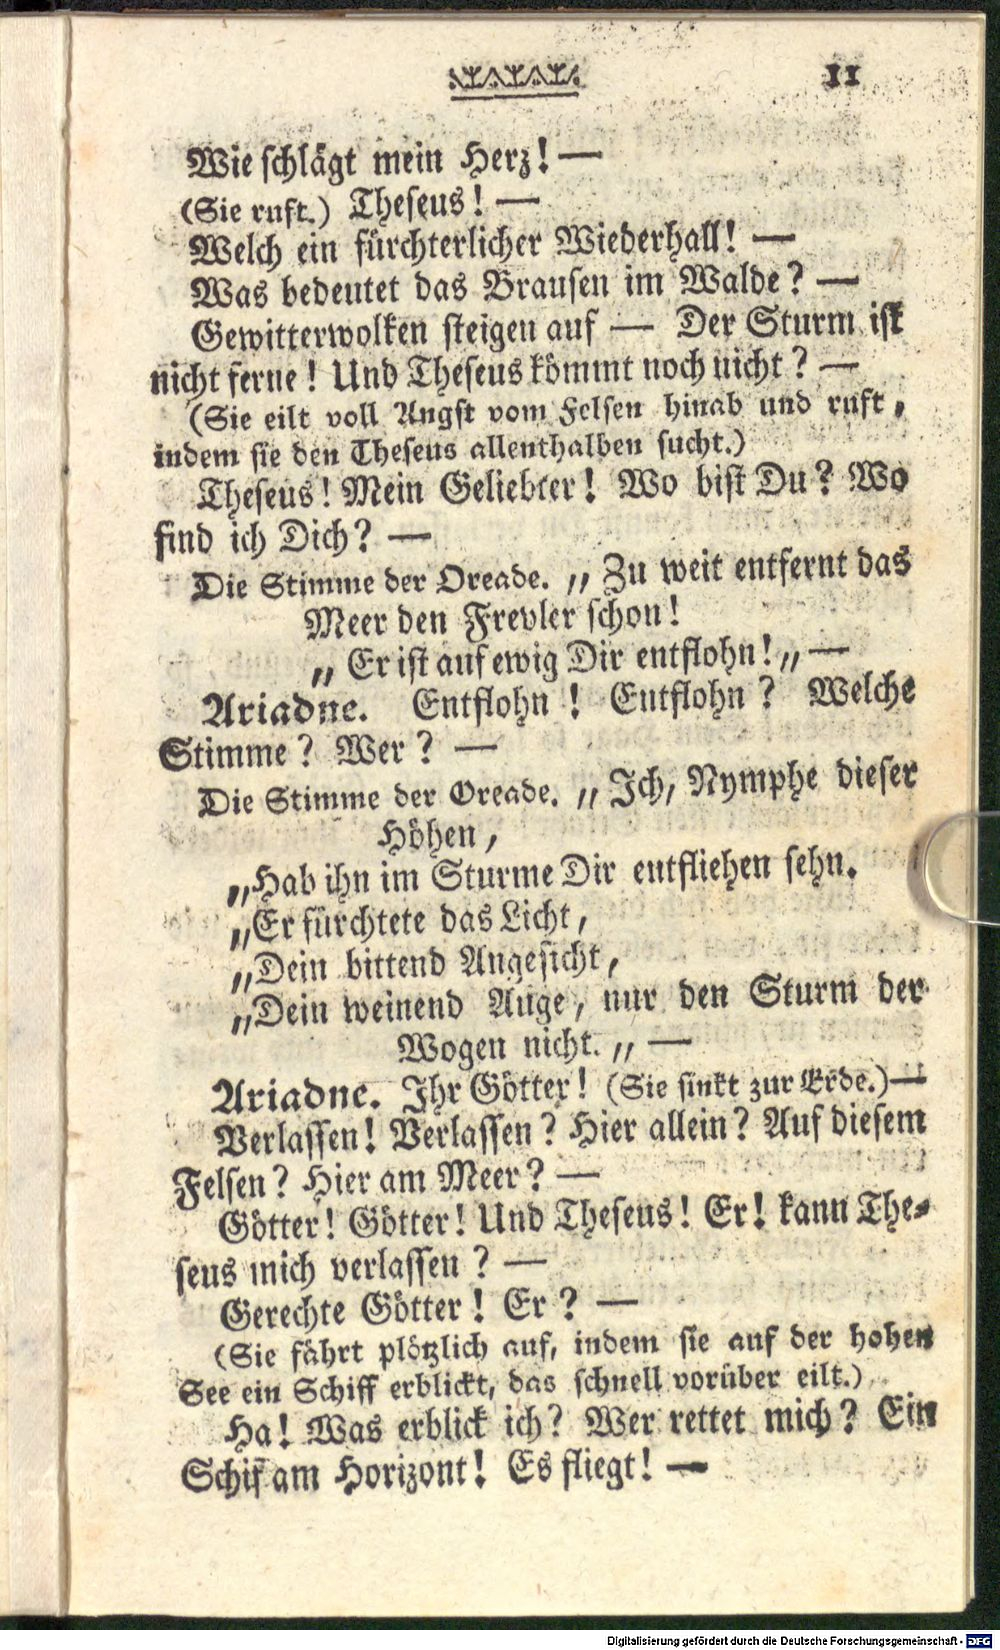 11
Wie schlägt mein Herz! —
(Sie ruft.) Theseus! —
Welch ein fürchterlicher Wiederhall! —
Was bedeutet das Brausen im Walde? —
Gewitterwolken steigen auf — Der Sturm ist
nicht ferne! Und Theseus kömmt noch nicht? —
(Sie eilt voll Angst vom Felsen hinab und ruft,
indem sie den Theseus allenthalben sucht.)
Theseus! Mein Geliebter! Wo bist Du? Wo
find ich Dich? —
Die Stimme der Oreade. „ Zu weit entfernt das
Meer den Frevler schon!
„ Er ist auf ewig Dir entflohn! „ —
Ariadne. Entflohn! Entflohn? Welche
Stimme? Wer? —
Die Stimme der Oreade. „ Ich, Nymphe dieser
Höhen,
„Hab ihn im Sturme Dir entfliehen sehn.
„Er fürchtete das Licht,
„Dein bittend Angesicht,
„Dein weinend Auge, nur den Sturm der
Wogen nicht. „ —
Ariadne. Ihr Götter! (Sie sinkt zur Erde.) —
Verlassen! Verlassen? Hier allein? Auf diesem
Felsen? Hier am Meer? —
Götter! Götter! Und Theseus! Er! kann The-
seus mich verlassen? —
Gerechte Götter! Er? —
(Sie fährt plötzlich auf, indem sie auf der hohen
See ein Schiff erblickt, das schnell vorüber eilt.)
Ha! Was erblick ich? Wer rettet mich? Ein
Schif am Horizont! Es fliegt! —
Digitalisierung gefördert durch die Deutsche Forschungsgemeinschaft - DFG